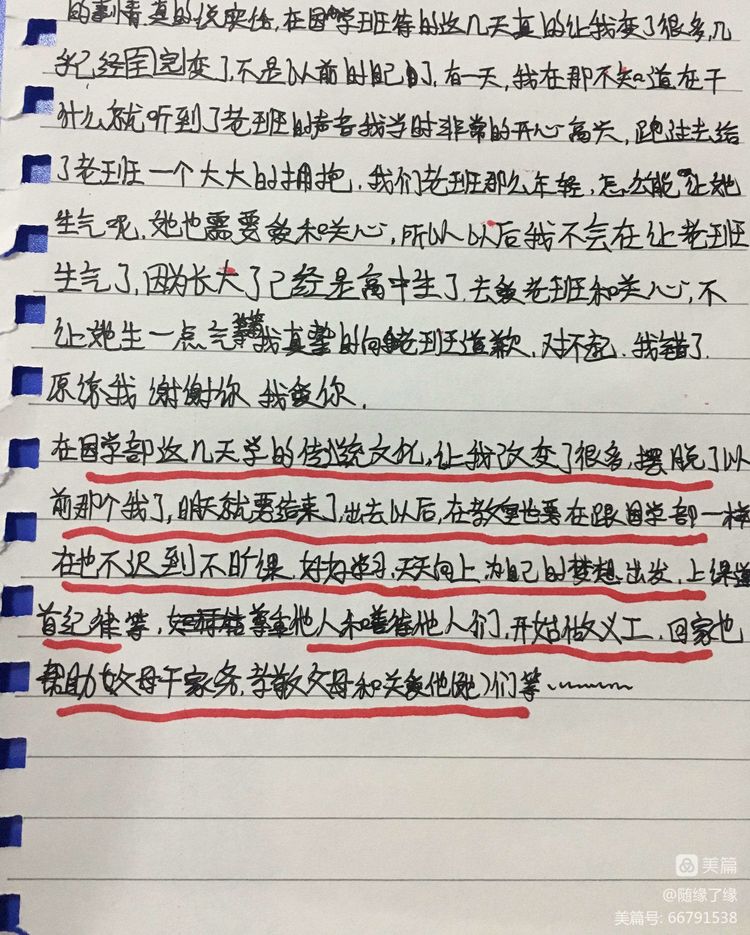 的事情真的说实话,在国学班待的这几天真的让我变了很多,几
乎已经全完变了,不是以前的自己了,有一天,我在那不知道在干
什么就听到了老班的声音我当时非常的开心高兴,跑过去给
了老班一个大大的拥抱,我们老班那么年轻,怎么能让她
生气呢,她也需要爱和关心,所以以后我不会在让老班
生气了,因为长大了已经是高中生了,去爱老班和关心,不
让她生一点气 我真挚的向老班道歉,对不起,我错了.
原谅我 谢谢你 我爱你.
在国学部这几天学的传统文化,让我改变了很多,摆脱了以
前那个我了,明天就要结束了,出去以后,在教室也要在跟国学部一样
在也不迟到不旷课,好好学习,天天向上,为自己的梦想出发,上课遵
首纪律等, 尊重他人和善待他人们,开始做义工,回家也
帮助父母干家务,孝敬父母和关爱他(她)们等
美篇
@随缘了缘
美篇号: 66791538